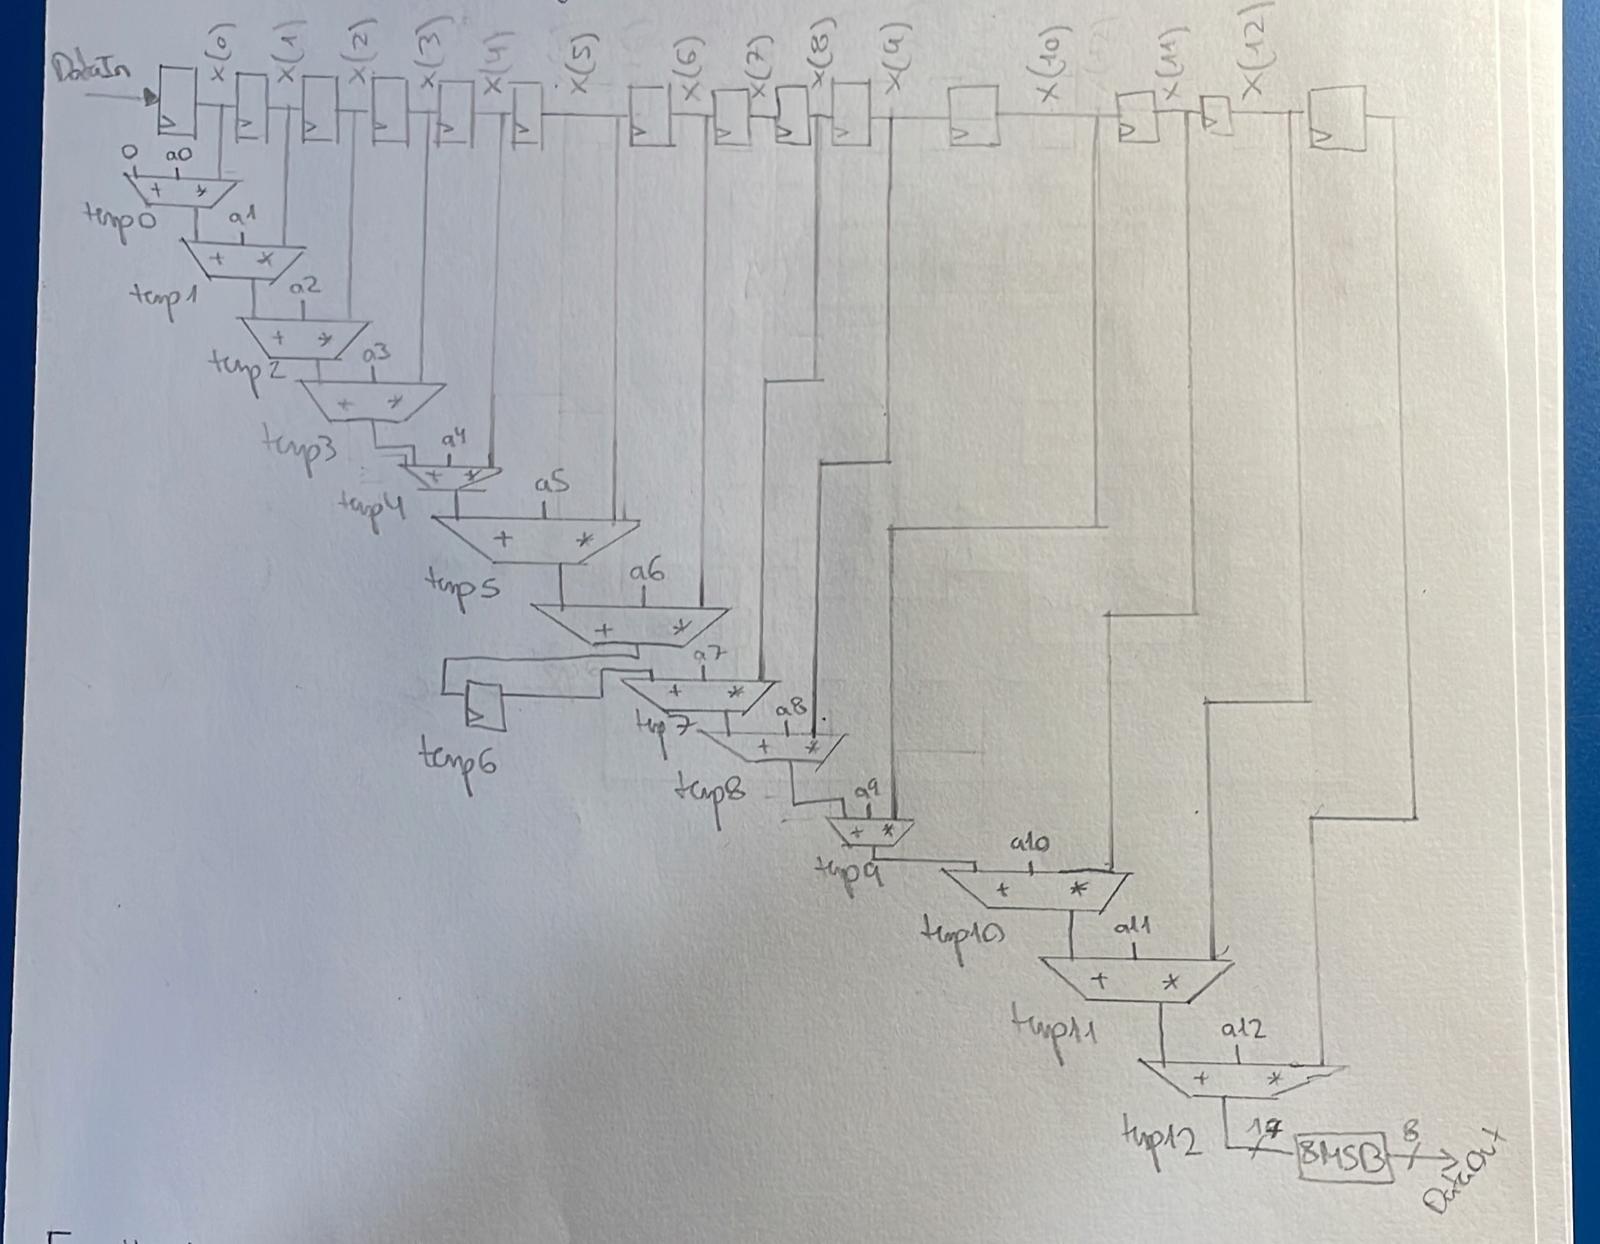 x(0) x(1) x(2) x(3) x(4) x(5) x(6) x(7) x(8) x(9) x(10) x(11) x(12)
DataIn
0 a0
+ *
temp0
a1
+ *
temp1
a2
+ *
temp2
a3
+ *
temp3
a4
+ *
temp4
a5
+ *
temp5
a6
+ *
a7
+ *
temp6
tmp7
a8
+ *
temp8
a9
+ *
temp9
a10
+ *
temp10
a11
+ *
temp11
a12
+ *
temp12
8MSB
8
DataOut